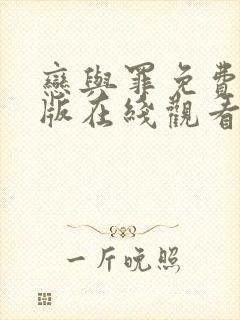 戀與罪免費
版在綫觀看
一斤晚照